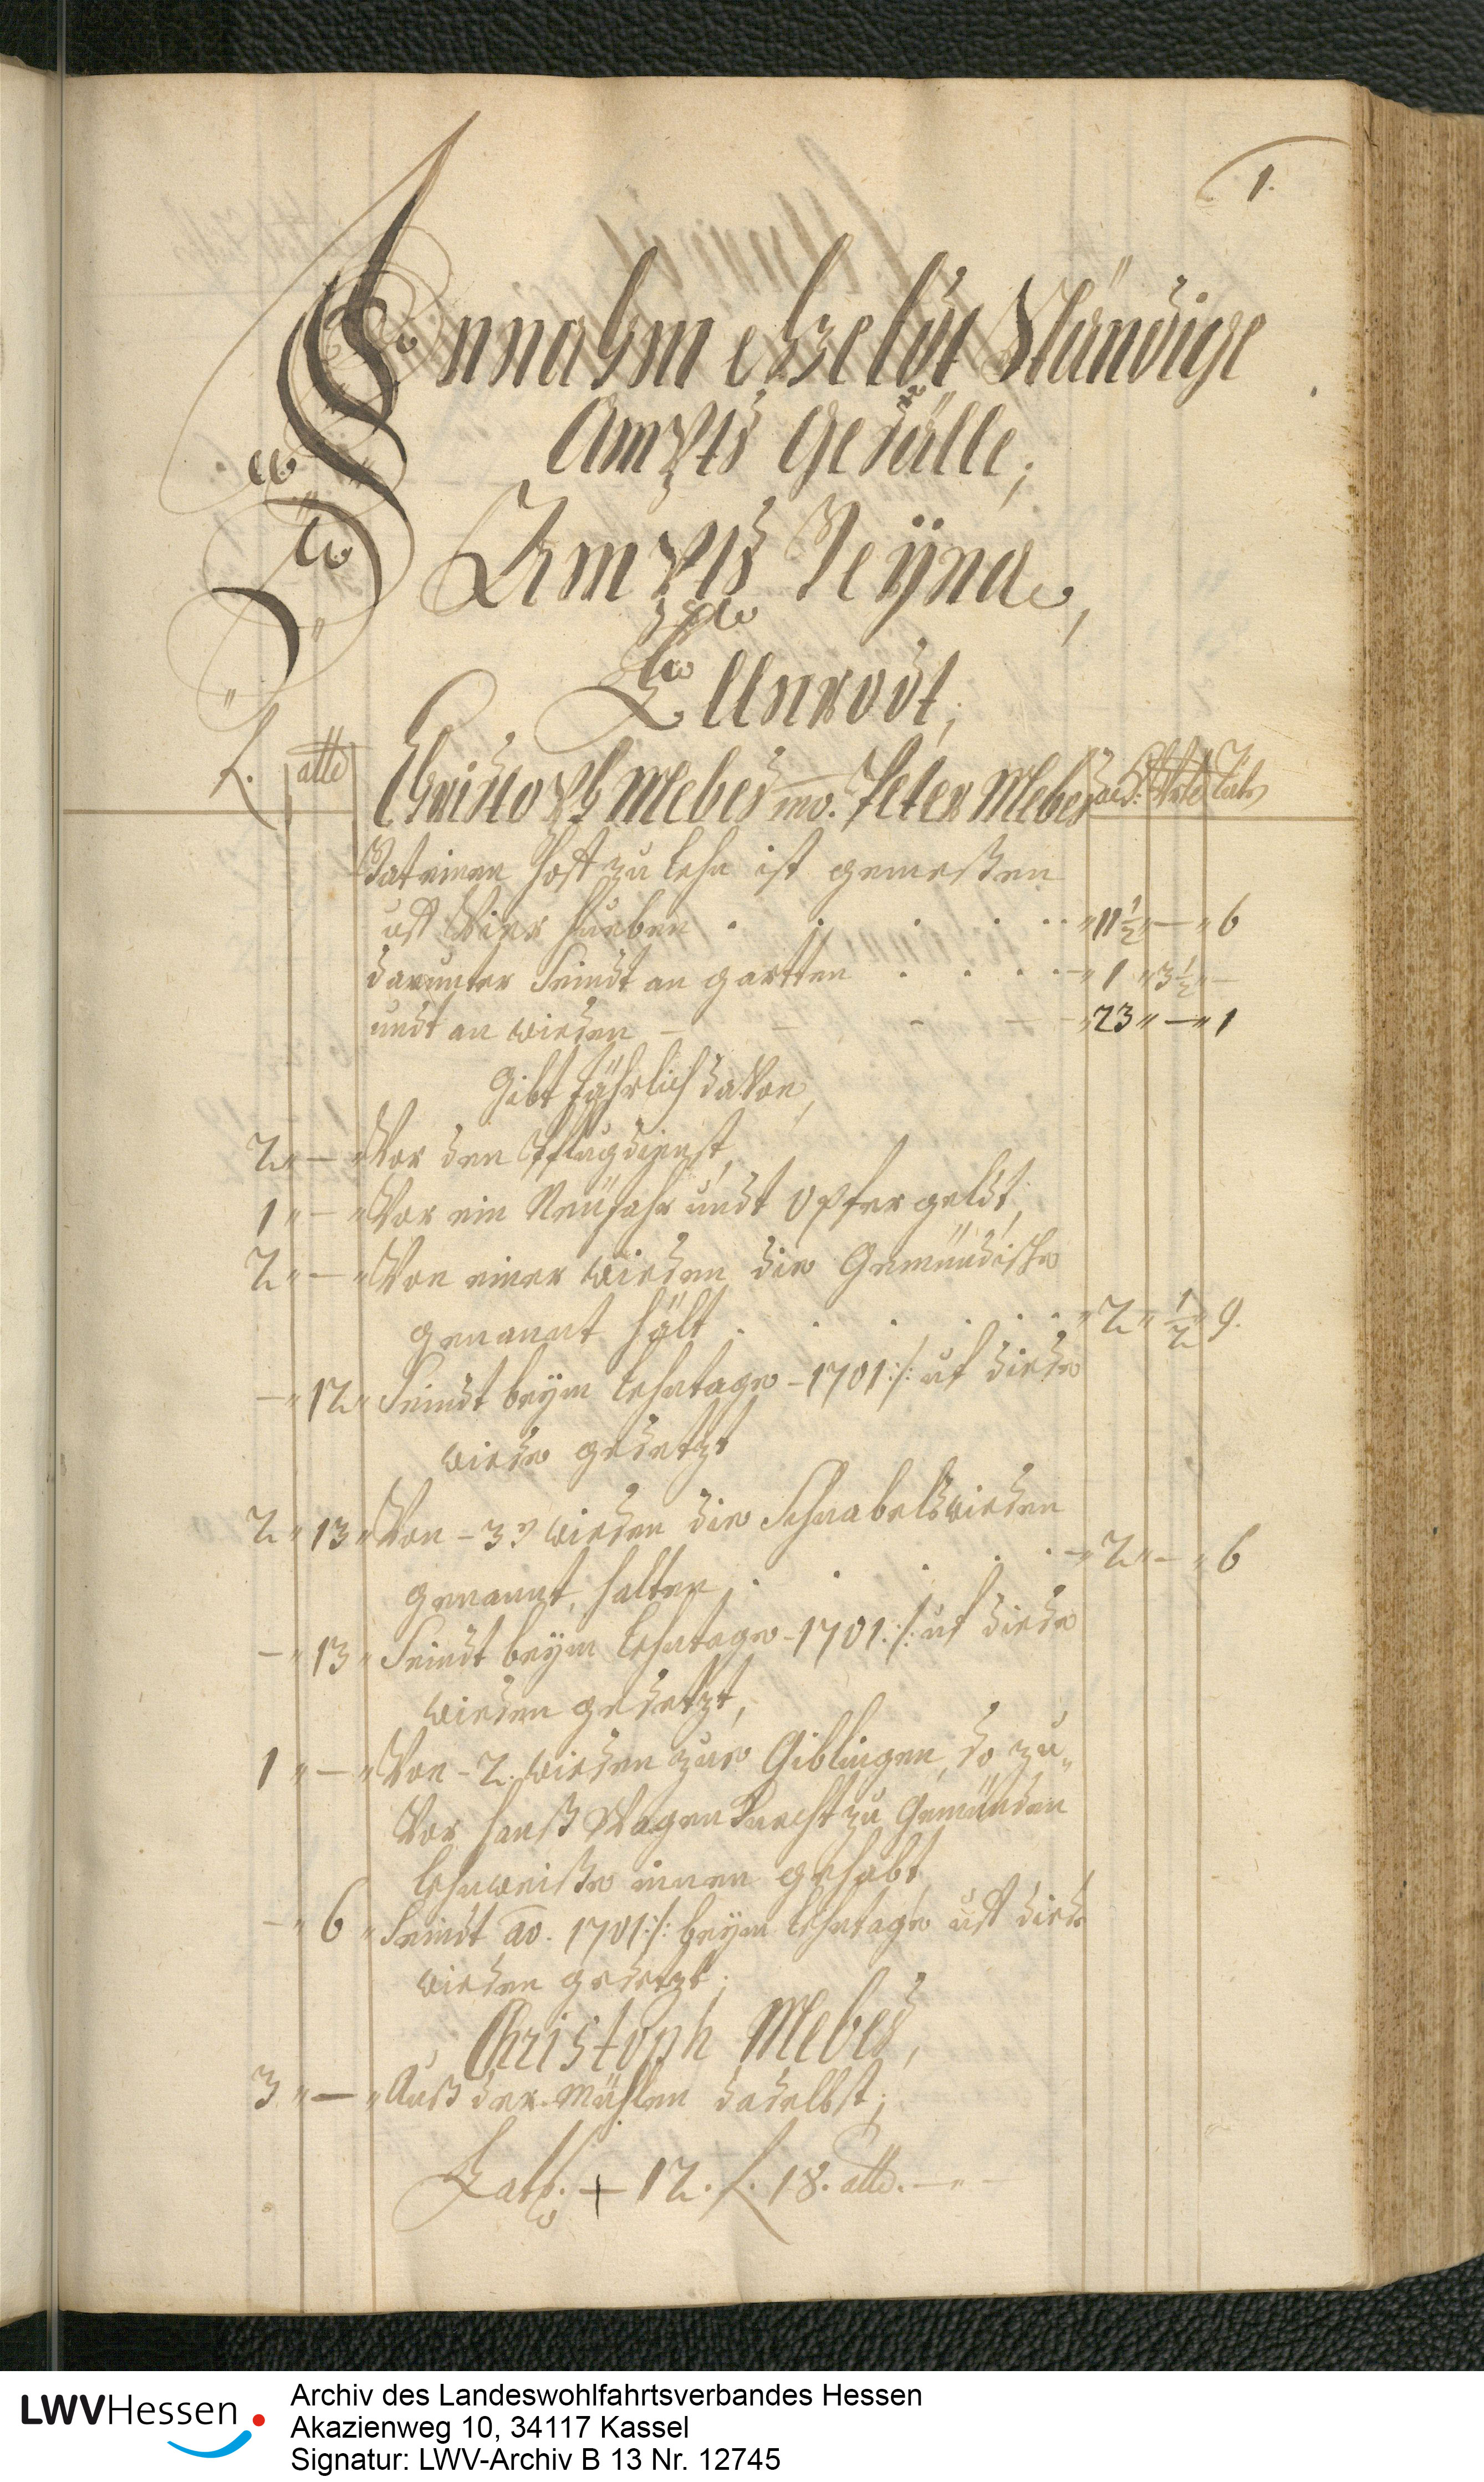 1.
Innahm ahn Geldt Ständige
Ampts Gefälle,
Ampts Heÿna,
Ellnrodt,
f. alb Christoph Mebes mo. Peter Mebes Ack: Vrtl Rut
Hat einen Hoff zu Lehn ist gemeßen
uff Vier Hueben . . . . . " 11½ " — " 6
darunter Seindt an gartten . . . . — " 1 " 3½ " —
undt an wiesen — — — — " 23 " — " 1
Gibt Jährlich davon,
2 " — " Vor den Pflugdienst,
1 " — " Vor ein Neujahr undt Opfer geldt,
2 " — " Von einer wiesen die Gemündische
genannt hält . . . . . " 2 " ½ " 9.
— " 12 " Seindt beÿm Lehntage - 1701 :/: uf diese
wiese gesetzt
2 " 13 " Von - 3 wiesen die Schnabelswiesen
genannt, halten . . . . . — " 2 " — " 6
— " 13 " Seindt beÿm Lehntage - 1701 :/: uf diese
wiesen gesetzt,
1 " — " Von - 2. wiesen zur Giblingen, so zu-
Vor Hanß Wagenknecht zu Gemünden
Lehnweiße innen gehabt
— " 6 " Seindt ao. 1701 :/: beÿm Lehntage uff diese
wiesen gesetzt;
Christoph Mebes,
3 " — " Auß der Mühlen daselbst;
Lat. + 12. f. 18. alb. — " —
LWVHessen
Archiv des Landeswohlfahrtsverbandes Hessen
Akazienweg 10, 34117 Kassel
Signatur: LWV-Archiv B 13 Nr. 12745